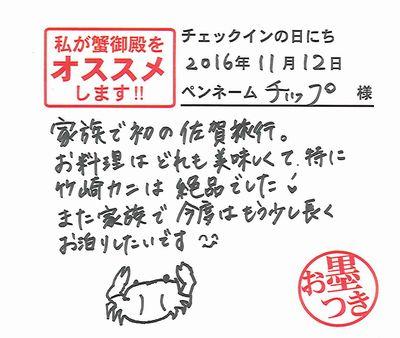 私が蟹御殿を
オススメ
します!!
チェックインの日にち
2016年11月12日
ペンネーム チップ 様
家族で初の佐賀旅行。
お料理はどれも美味しくて、特に
竹崎カニは絶品でした
また家族で今度はもう少し長く
お泊りしたいです
お墨つき